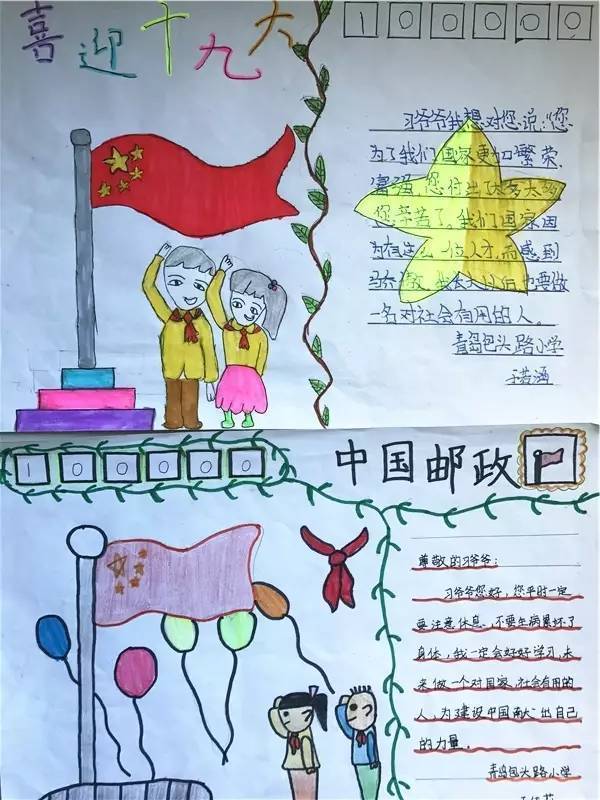 喜迎十九大
100000
习爷爷我想对您说:"您
为了我们国家更加繁荣、
富强,您付出了太多太多
您辛苦了。我们国家因
为有这么一位人才而感到
长大以后也要做
一名对社会有用的人。
青岛包头路小学
100000
中国邮政
尊敬的习爷爷:
习爷爷您好,您平时一定
要注意休息、不要生病累坏了
身体,我一定会好好学习,未
来做一个对国家、社会有用的
人,为建设中国献出自己
的力量。
青岛包头路小学